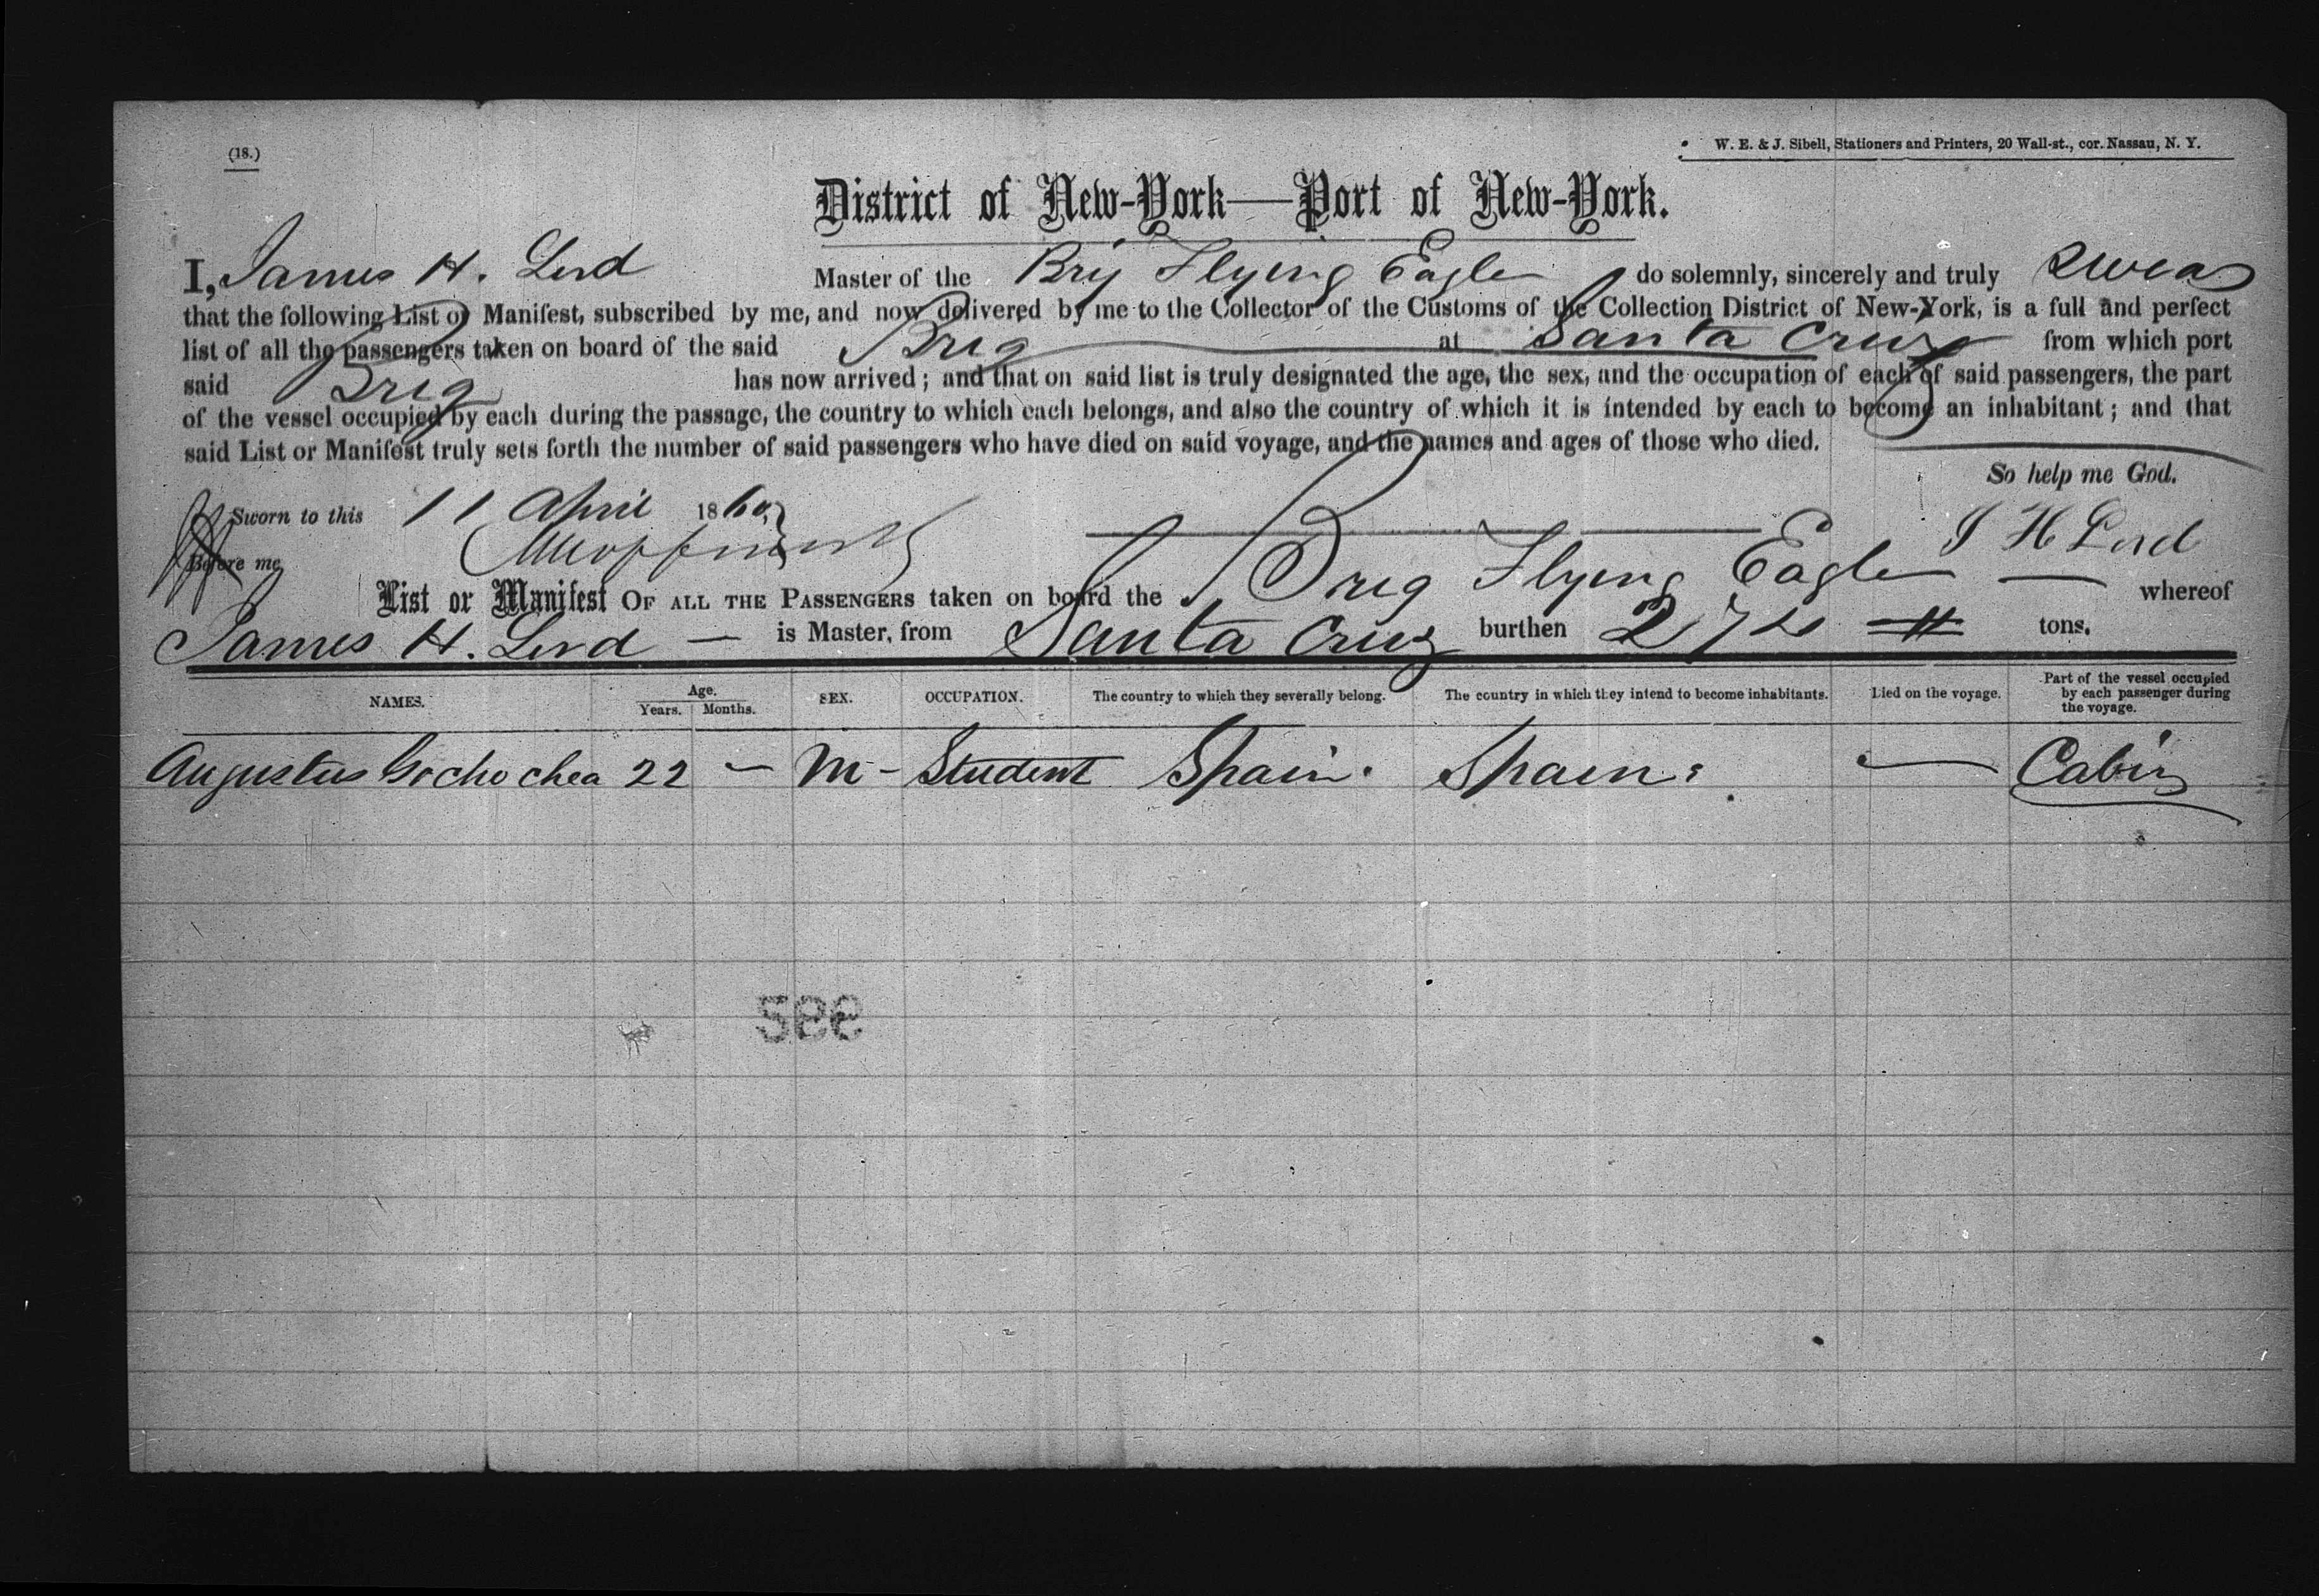 (18.)
W. E. & J. Sibell, Stationers and Printers, 20 Wall-st., cor. Nassau, N. Y.
District of New-York—Port of New-York.
I, James H. Lord Master of the Brig Flying Eagle do solemnly, sincerely and truly swear
that the following List or Manifest, subscribed by me, and now delivered by me to the Collector of the Customs of the Collection District of New-York, is a full and perfect
list of all the passengers taken on board of the said Brig at Santa Cruz from which port
said Brig has now arrived; and that on said list is truly designated the age, the sex, and the occupation of each of said passengers, the part
of the vessel occupied by each during the passage, the country to which each belongs, and also the country of which it is intended by each to become an inhabitant; and that
said List or Manifest truly sets forth the number of said passengers who have died on said voyage, and the names and ages of those who died.
So help me God.
Sworn to this 11 April 1860
J H Lord
Before me
List or Manifest OF ALL THE PASSENGERS taken on board the Brig Flying Eagle — whereof
James H. Lord — is Master, from Santa Cruz burthen 272 tons.
NAMES. Age. Years. Months. SEX. OCCUPATION. The country to which they severally belong. The country in which they intend to become inhabitants. Died on the voyage. Part of the vessel occupied by each passenger during the voyage.
Augustus 22 — M - Student Spain. Spain. — Cabin